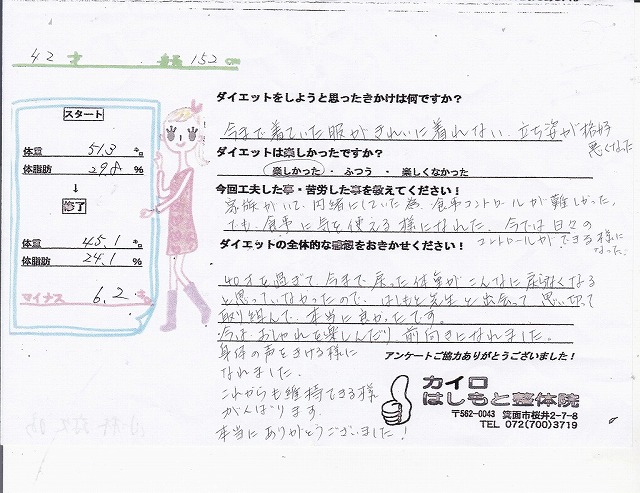 42 才 身長 152 cm
スタート
体重 51.3 キロ
体脂肪 29.8 %
終了
体重 45.1 キロ
体脂肪 24.1 %
マイナス 6.2 キロ
ダイエットをしようと思ったきかけは何ですか？
今まで着ていた服がきれいに着れない、立ち姿が格好
悪くなった
ダイエットは楽しかったですか？
楽しかった ・ ふつう ・ 楽しくなかった
今回工夫した事・苦労した事を教えてください！
家族がいて、内緒にしていた為、食事コントロールが難しかった。
でも、食事に気を使える様になれた。今では日々の
コントロールができる様に
なった。
ダイエットの全体的な感想をおきかせください！
40才を過ぎて、今まで戻った体重がこんなに戻なくなる
と思っていなかったので、はしもと先生と出会って思い切って
取り組んで、本当に良かったです。
今は、おしゃれを楽しんだり、前向きになれました。
身体の声をきける様に
なれました。
これからも維持できる様
がんばります。
本当にありがとうございました！
アンケートご協力ありがとうございました！
カイロ
はしもと整体院
〒562-0043 箕面市桜井2-7-8
TEL 072(700)3719